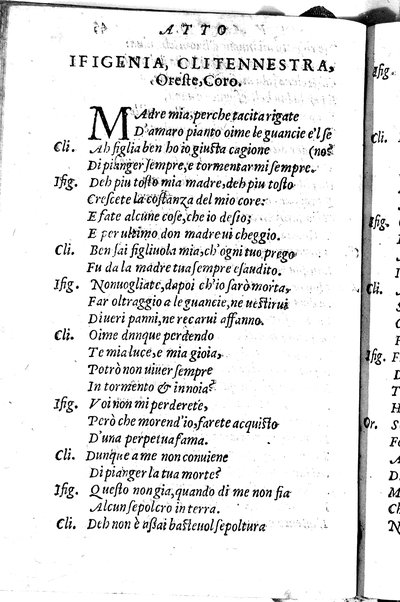 ATTO
IFIGENIA, CLITENNESTRA,
Oreſte, Coro.
MAdre mia, perche tacita rigate
D'amaro pianto oime le guancie e'l ſe
Cli. Ah figlia ben ho io giuſta cagione (no?
Di pianger ſempre, e tormentarmi ſempre.
Ifig. Deh piu toſto mia madre, deh piu toſto
Creſcete la coſtanza del mio core:
E fate alcune coſe, che io deſio;
E per ultimo don madre ui cheggio.
Cli. Ben ſai figliuola mia, ch'ogni tuo prego
Fu da la madre tua ſempre eſaudito.
Ifig. Non uogliate, dapoi ch'io ſarò morta,
Far oltraggio a le guancie, ne ueſtirui
Di ueri panni, ne recarui affanno.
Cli. Oime dnnque perdendo
Te mia luce, e mia gioia,
Potrò non uiuer ſempre
In tormento & in noia?
Ifig. Voi non mi perderete,
Però che morend'io, farete acquiſto
D'una perpetua fama.
Cli. Dunque a me non conuiene
Di pianger la tua morte?
Ifig. Queſto non gia, quando di me non fia
Alcun ſepolcro in terra.
Cli. Deh non è aßai baſteuol ſepoltura
Ifig.
Cli.
Ifig.
Cli.
Ifig.
Or.